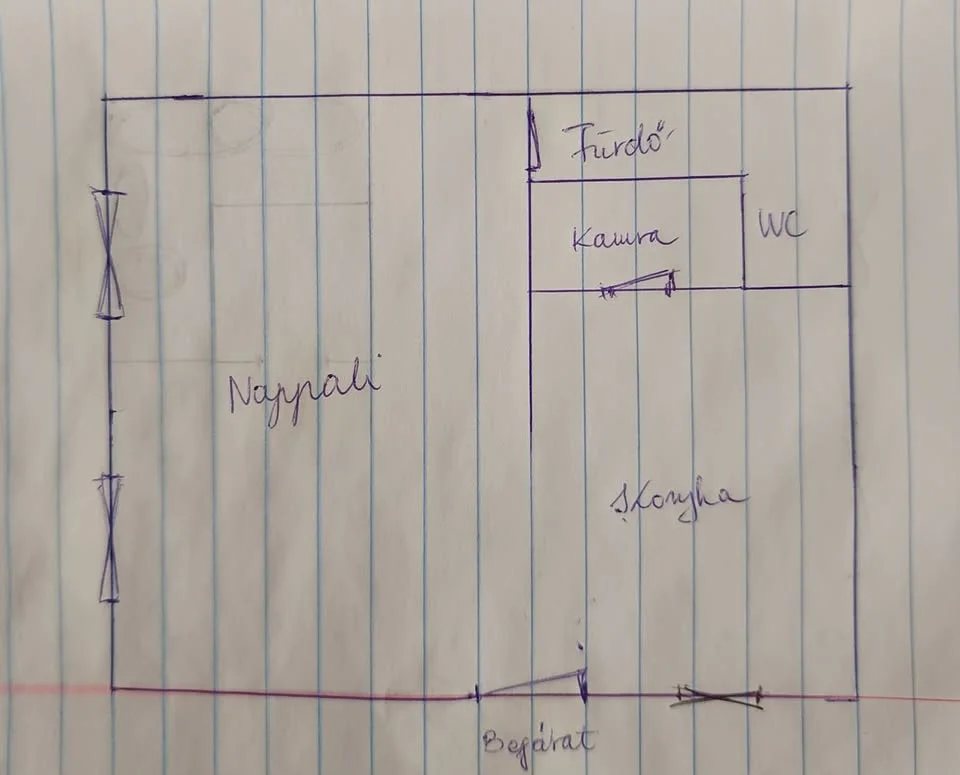 Fürdő
Kamra
WC
Nappali
Konyha
Bejárat